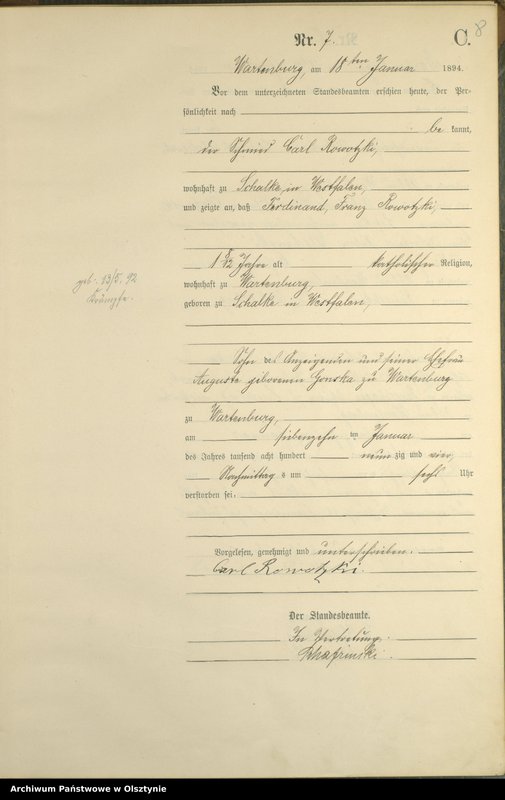 8
Nr. 7.
C.
Wartenburg, am 18ten Januar 1894.
Vor dem unterzeichneten Standesbeamten erschien heute, der Per-
sönlichkeit nach
be kannt,
der Schmied Carl Rowotzki,
wohnhaft zu Schalke in Westfalen,
und zeigte an, daß Ferdinand, Franz Rowotzki,
Jahre alt katholischer Religion,
geb. 13/5. 92
wohnhaft zu Wartenburg,
Krämpfe.
geboren zu Schalke in Westfalen,
Sohn des Anzeigenden und seiner Ehefrau
Auguste geborenen Gonska zu Wartenburg
zu Wartenburg,
am siebenzehn ten Januar
des Jahres tausend acht hundert neun zig und vier,
Nachmittag s um sechs Uhr
verstorben sei.
Vorgelesen, genehmigt und unterschrieben.
Carl Rowotzki.
Der Standesbeamte.
In Vertretung.
Archiwum Państwowe w Olsztynie